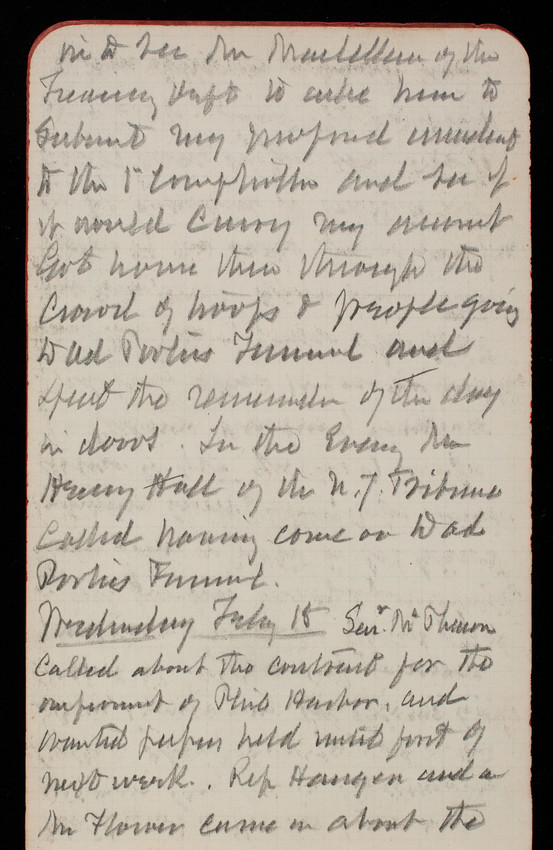 in to see Mr of the
Treasury Dept to ask him to
submit my proposed
to the 1st Comptroller and see if
it would carry my account
Got home then through the
crowd of troops & people going
to Ad Porters Funeral and
spent the remainder of the day
in doors. In the Evening Mr
Henry Hall of the N.Y. Tribune
called having come on to Ad
Porters Funeral.
Wednesday Feby 18 Senr. McPherson
called about the contract for the
of Phil Harbor, and
wanted papers held until first of
next week. Rep. Haugen and a
Mr Flower came in about the